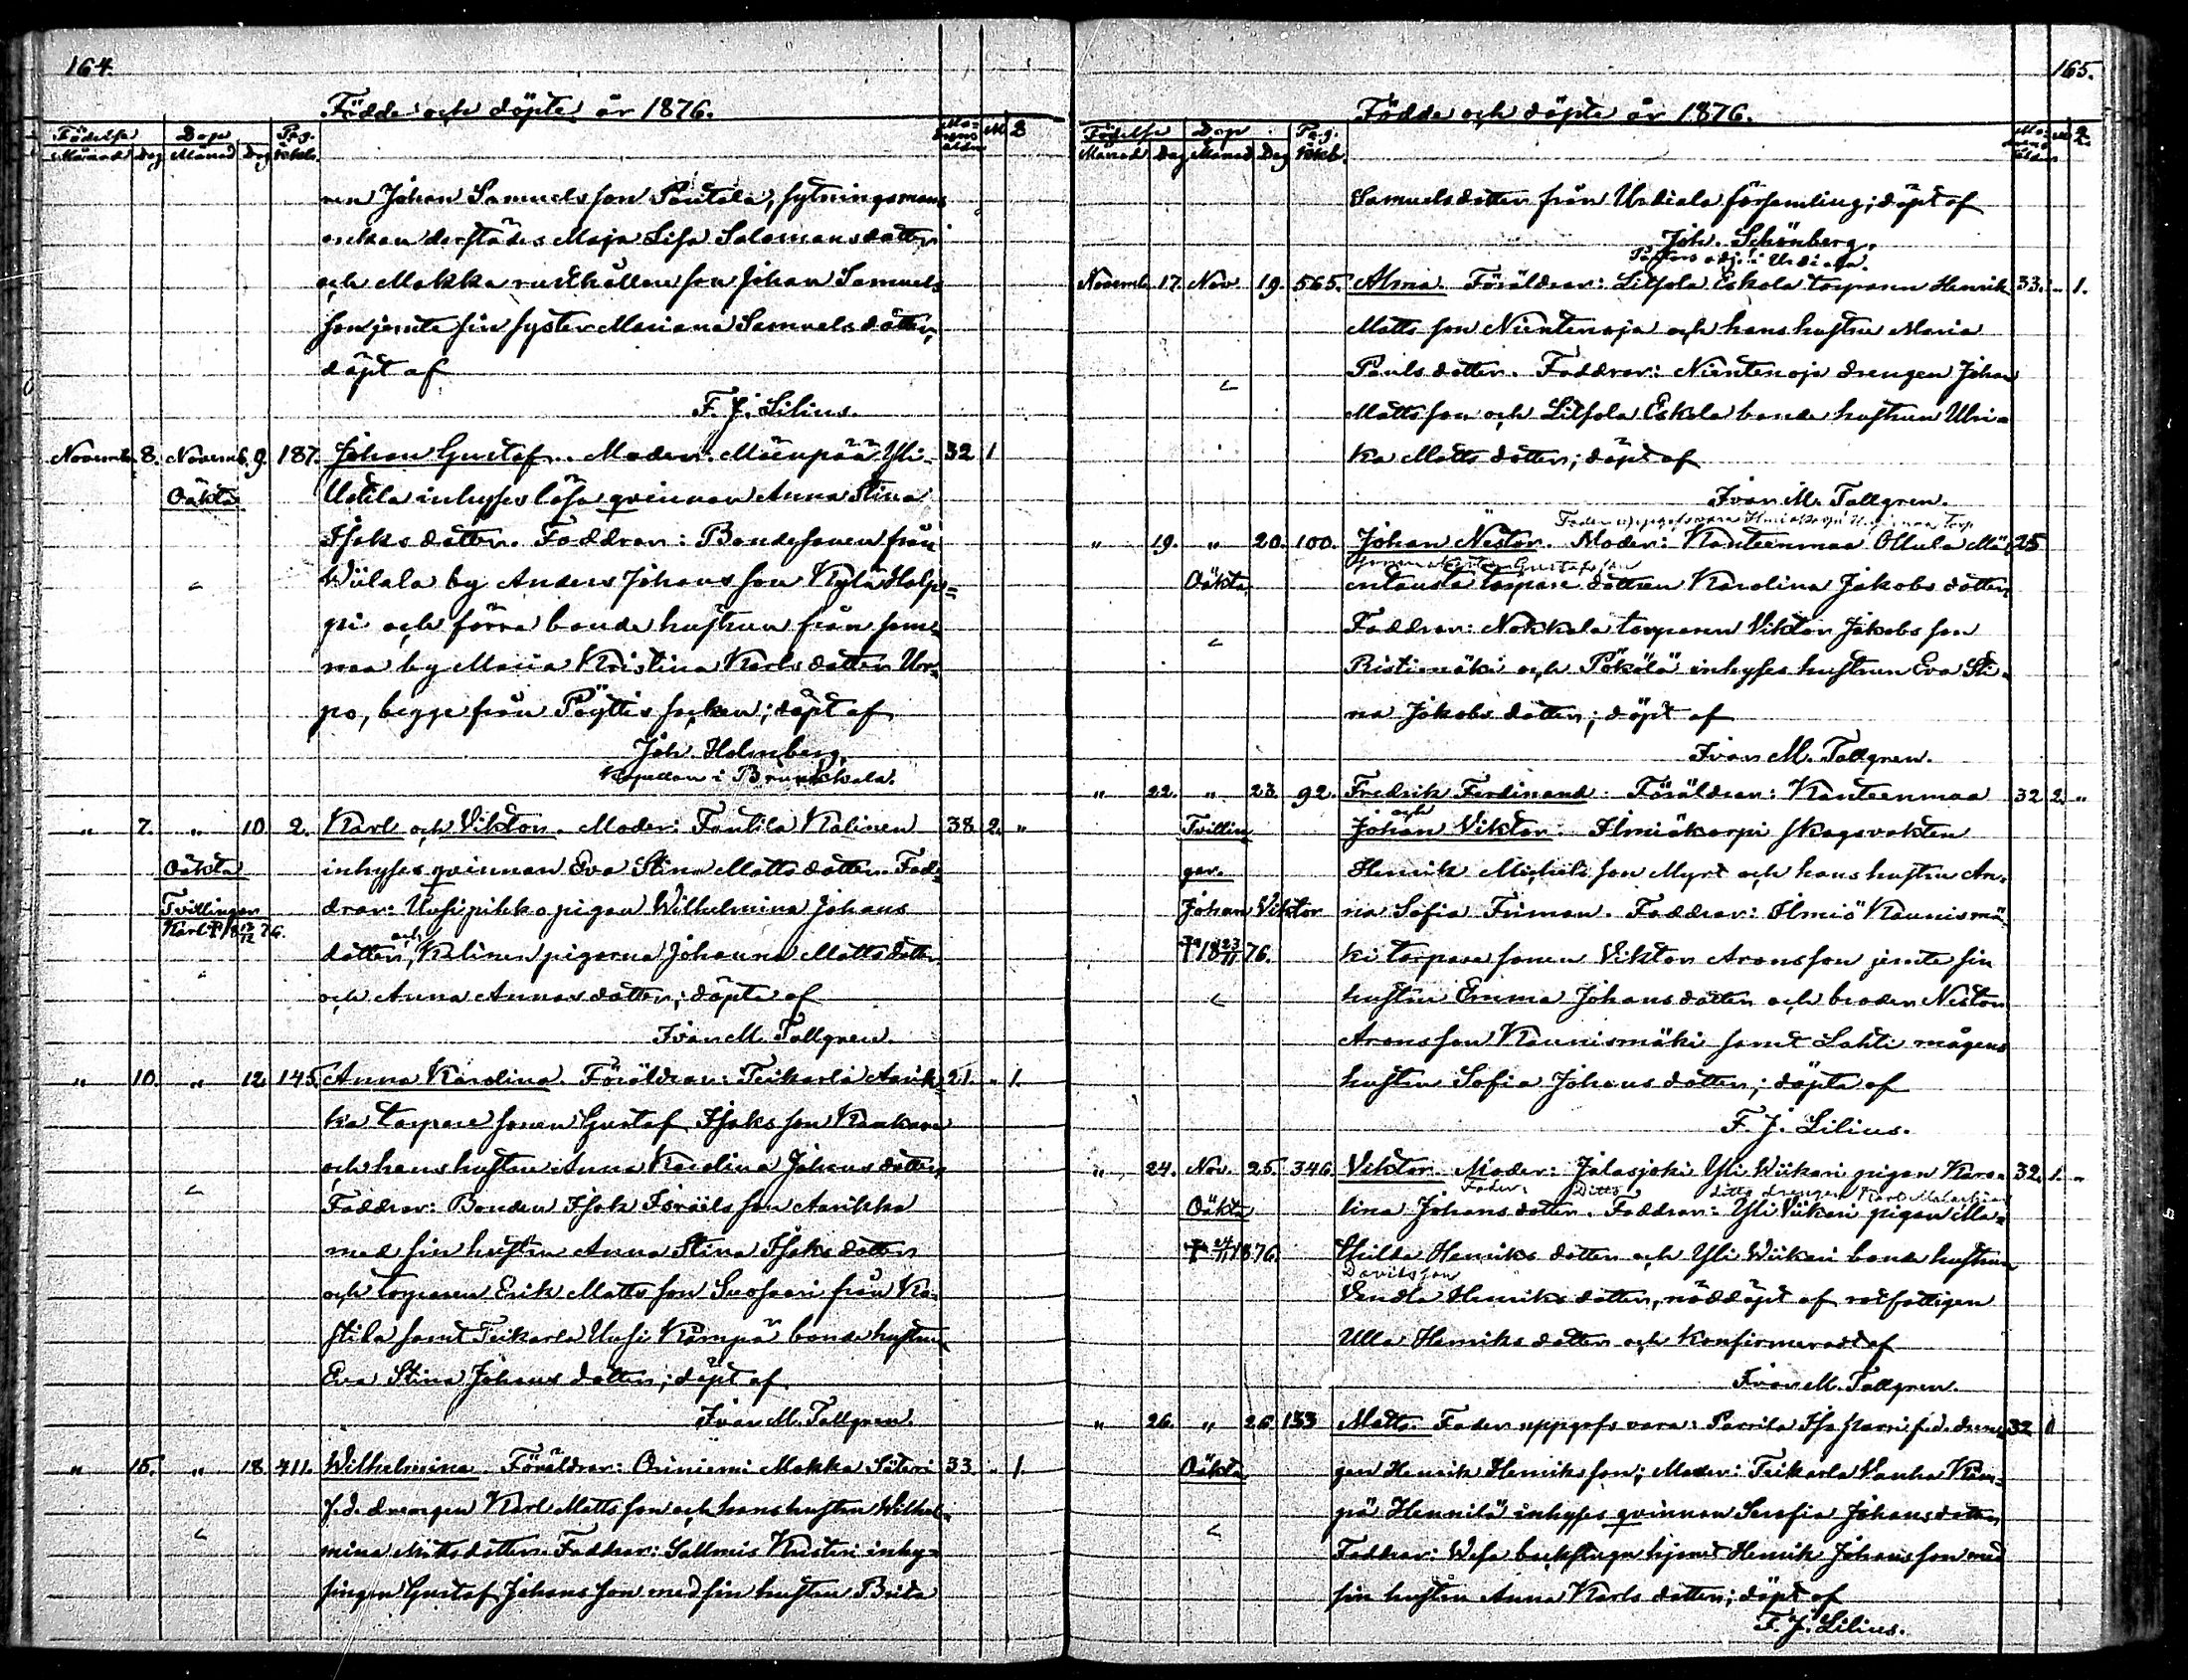 164.
Födde och döpte år 1876.
Födelse Dop Pag.
Månad Dag Månad Dag
ren Johan Samuelsson Pautala, sytningsmans
enkan derstädes Maja Lisa Salomonsdotter
och Makka rusthållare son Johan Samuels
son jemte sin syster Mariana Samuelsdotter,
döpt af
F. J. Lilius.
Novemb. 8. Novemb. 9. 187. Johan Gustaf. Moder: Mäenpää Yli- 32 1
Oäkta Uotila inhyses lösa qvinnan Anna Stina
Isaksdotter. Faddrar: Bondesonen från
Wiilala by Anders Johansson Kylä Holp=
pi och förra bonde hustrun från sam=
ma by Maria Kristina Karlsdotter Ur=
po, begge från Pöyttis socken; döpt af
Joh. Holmberg,
Kapellan i Brunkkala.
" 7. " 10. 2. Karl och Viktor. Moder: Tontila Kalinen 38 2. "
Oäkta inhyses qvinnan Eva Stina Mattsdotter. Fad=
Tvillingar drar: Uusipikko pigan Wilhelmina Johans
Karl † 18 76.
dotter, och Kalinen pigorna Johanna Mattsdotter
och Anna Annasdotter; döpte af
Ivar M. Tallgren.
" 10. " 12. 145. Anna Karolina. Föräldrar: Teikarla Aarik= 21. " 1.
ka torpare sonen Gustaf Isaksson Kankare
och hans hustru Anna Karolina Johansdotter,
Faddrar: Bonden Isak Israelsson Aarikka
med sin hustru Anna Stina Isaksdotter
och torparen Erik Mattsson Suosaari från Ka=
stila samt Teikarla Uusi Kämpä bonde hustru
Eva Stina Johansdotter; döpt af
Ivar M. Tallgren.
" 15. " 18. 411. Wilhelmina. Föräldrar: Oriniemi Makka Säteri 33. " 1.
f.d. drengen Karl Mattsson och hans hustru Wilhel=
mina Mattsdotter. Faddrar: Sallmis Knsteri inhy=
singen Gustaf Johansson med sin hustru Brita
165.
Födde och döpte år 1876.
Födelse Dop Pag.
Månad Dag Månad Dag
Samuelsdotter från Urdiala församling; döpt af
Joh. Schönberg.
Pastors adj. i Urdiala.
Novemb. 17. Nov. 19. 565. Alma. Föräldrar: Litsola Eskola torparen Henrik 33. " 1.
Mattsson Nientenoja och hans hustru Maria
Paulsdotter. Faddrar: Nientenoja drengen Johan
Mattsson och Litsola Eskola bonde hustrun Ulri=
ka Mattsdotter; döpt af
Ivar M. Tallgren.
" 19. " 20. 100. Johan Nestor. Moder: Kanteenmaa Ollula Mä= 25
Oäkta entausta torpare dottren Karolina Jakobsdotter,
Faddrar: Nokkala torparen Viktor Jakobsson
Ristimäki och Pökölä inhyses hustrun Eva Sti=
na Jakobsdotter; döpt af
Ivar M. Tallgren.
" 22. " 23. 92. Fredrik Ferdinand och Föräldrar: Kanteenmaa 32 2. "
Tvillin Johan Viktor. Ilmiäkorpi skogsvakten
gar. Henrik Michelsson Myrt och hans hustru An=
Johan Viktor na Sofia Friman. Faddrar: Ilmiö Kaunismä=
† 18 23/11 76. ki torpare sonen Viktor Aronsson jemte sin
hustru Emma Johansdotter och brodern Nestor
Aronsson Kaunismäki samt Lahti mågens
hustru Sofia Johansdotter; döpta af
F. J. Lilius.
" 24. Nov. 25. 346. Viktor. Moder: Jalasjoki Yli Wiikari pigan Karo= 32. 1. "
Fader: Ditto ditto drengen Karl Malakias
Oäkta lina Johansdotter. Faddrar: Yli Wiikari pigan Ma=
† 24/11 1876. thilda Henriksdotter och Yli Wiikari bonde hustrun
Davidsson
Vendla Henriksdotter, nöddöpt af rotfattigen
Ulla Henriksdotter och konfirmeradt af
Ivar M. Tallgren.
" 26. " 26 133 Matts. Fader uppgefs vara: Parrila Iso Parri f.d. dren= 32 1
Oäkta gen Henrik Henriksson; Moder: Teikarla Vanha Käm=
pä Hennilä inhyses qvinnan Serafia Johansdotter
Faddrar: Wesa backstugu hjonet Henrik Johansson med
sin hustru Anna Karlsdotter; döpt af
F. J. Lilius.